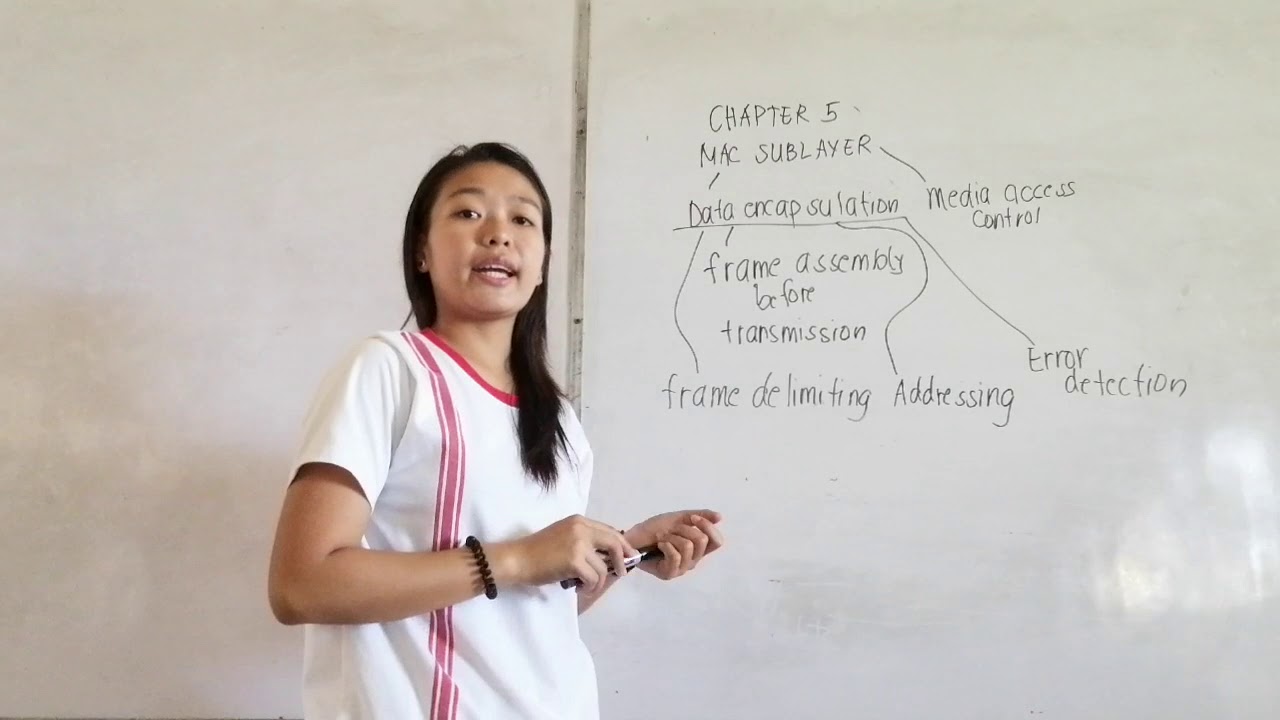 CHAPTER 5
MAC SUBLAYER
Media access
control
Data encapsulation
frame assembly
before
transmission
frame delimiting
Addressing
Error
detection